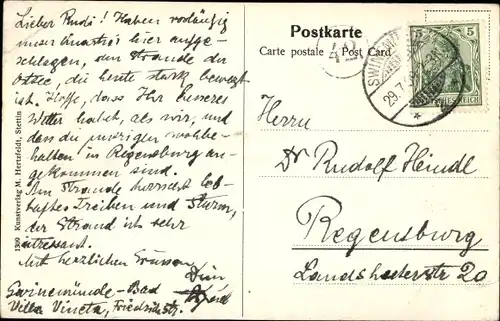 Lieber Rudi! Haben vorläufig
unser Quartier hier aufge-
schlagen, am Strande der
Ostsee, die heute stark bewegt
ist. Hoffe, dass Ihr besseres
Wetter habt, als wir, und
dass die wohlbe-
halten in Regensburg an-
gekommen sind.
Am Strande herrscht leb-
haftes Treiben und Sturm,
der Strand ist sehr
interessant.
Mit herzlichen Grüssen
Dein
Swinemünde-Bad
Villa Vineta, Friedrichstr.
1390 Kunstverlag M. Hertzfeldt, Stettin
Postkarte
Carte postale Post Card
42
5 5
SWINEMÜNDE
29.7.
DEUTSCHES REICH
Herrn
Dr Rudolf Heindl
Regensburg
Landshuterstr 20